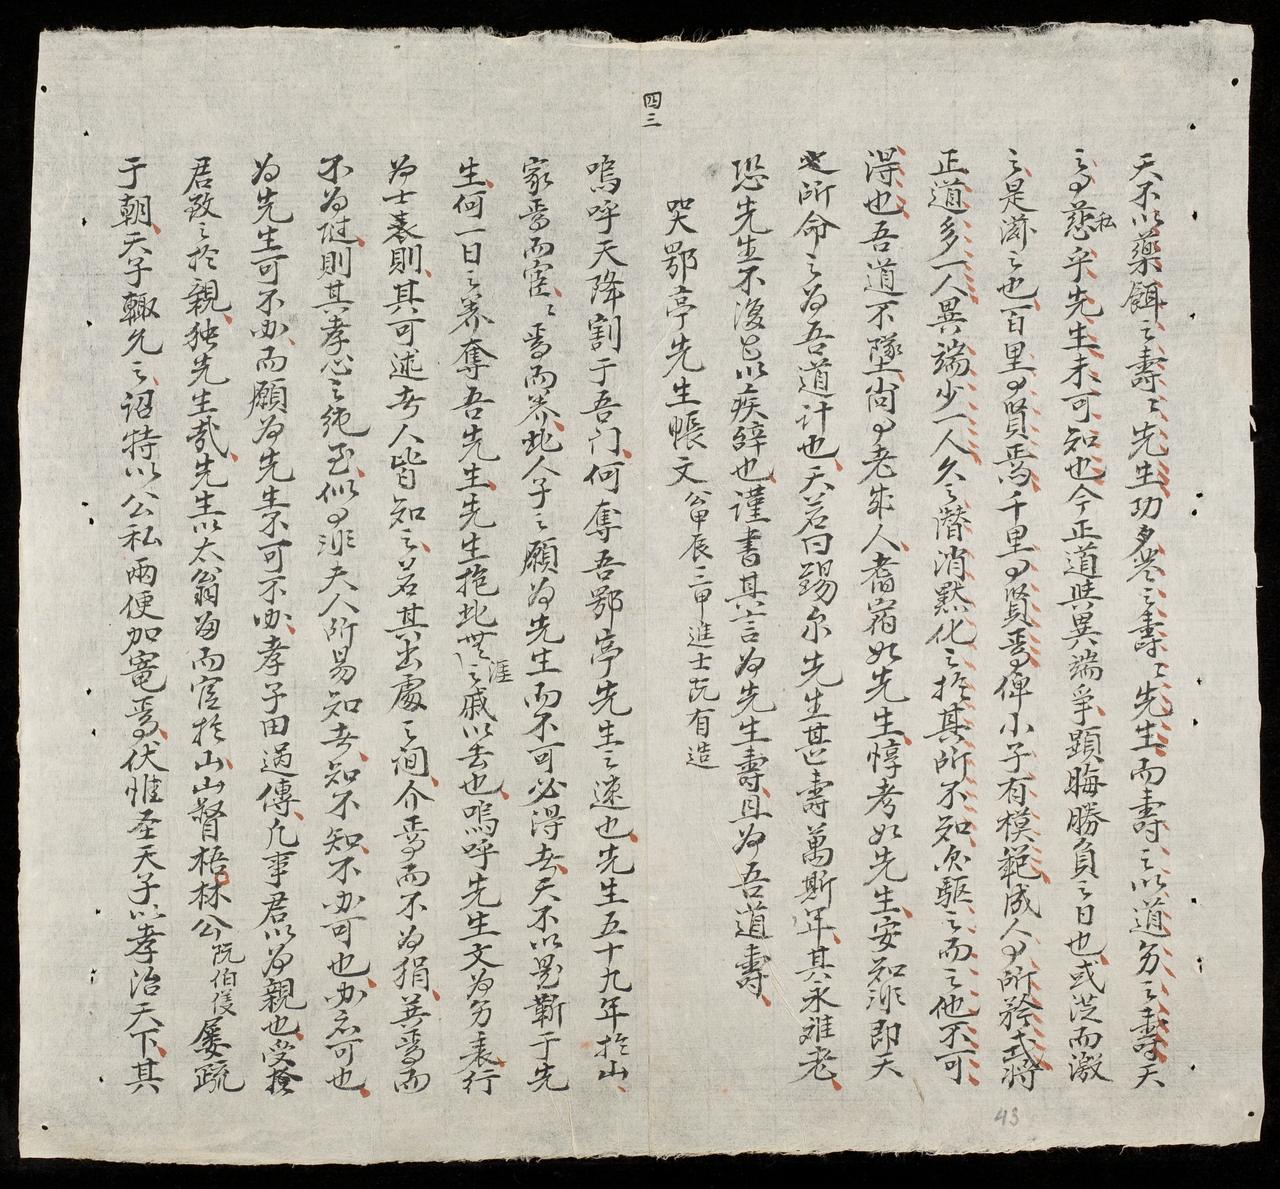 四三
天不以藥餌之壽〻先生功多卷之壽〻先生而壽之以道分之壽天
之可慈私乎先生未可知也今正道與異端爭顯晦勝負之日也或從而激
之是濟之也百里得賢焉千里得賢焉俾小子有模範成人得所矜式將
正道多一人異端少一人久之潛消默化之於其所不知次驅之而之他不可
得也吾道不墜尚得老成人耆宿如先生惇考如先生安知非即天
之所命之為吾道計也天若曰錫尔先生其壽萬斯年其永难老
恐先生不復㠯以疾辭也謹書其言為先生壽且為吾道壽
哭鄂亭先生帳文 公甲辰二甲進士阮有造
嗚呼天降割于吾门何奪吾鄂亭先生之速也先生五十九年於山
家焉而宦〻焉而养此人子之願为先生而不可必得者天不以是靳于先
生何一日之养奪吾先生先生抱此無涯之戚以去也嗚呼先生文為名表行
为士表則其可述者人皆知之若其出處之间介焉而不为狷異焉而
不为陡則其孝心之纯至似得非夫人所易知者知不知不办可也办亦可也
为先生可不办而願为先生不可不办孝子田过傳凡事君以为親也受於
君致之於親独先生哉先生以太翁为而宦於山山督梧林公阮伯仪屡疏
于朝天子輙允之詔特以公私兩便加寵焉伏惟圣天子以孝治天下其
43